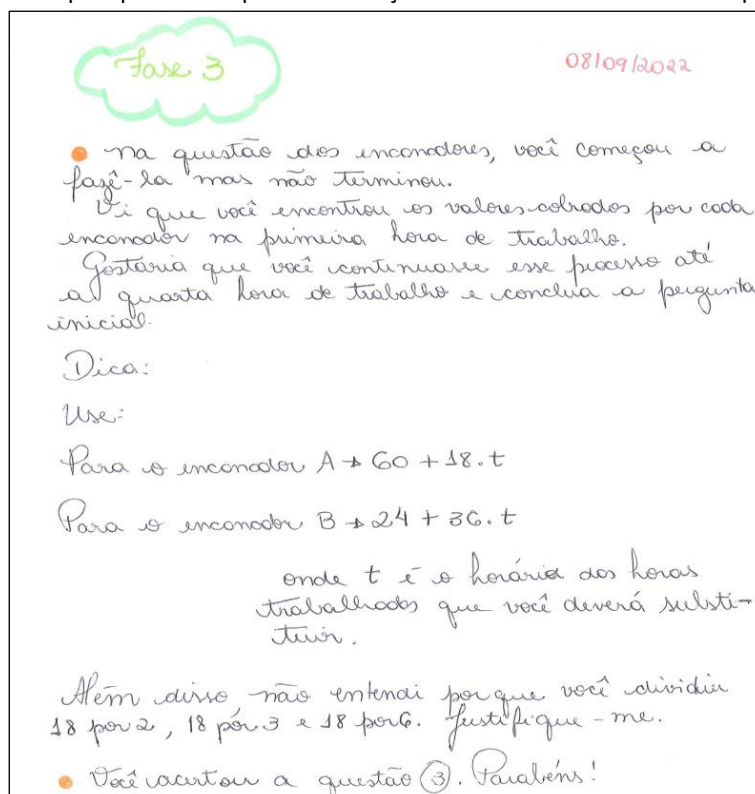 Fase 3
08/09/2022
na questão dos encanadores, você começou a
fazê-la mas não terminou.
Vi que você encontrou os valores cobrados por cada
encanador na primeira hora de trabalho.
Gostaria que você continuasse esse processo até
a quarta hora de trabalho e conclua a pergunta
inicial.
Dica:
Use:
Para o encanador A → 60 + 18.t
Para o encanador B → 24 + 36.t
onde t é o horário das horas
trabalhadas que você deverá substi-
tuir.
Além disso, não entendi porque você dividiu
18 por 2, 18 por 3 e 18 por 6. Justifique-me.
Você acertou a questão 3. Parabéns!